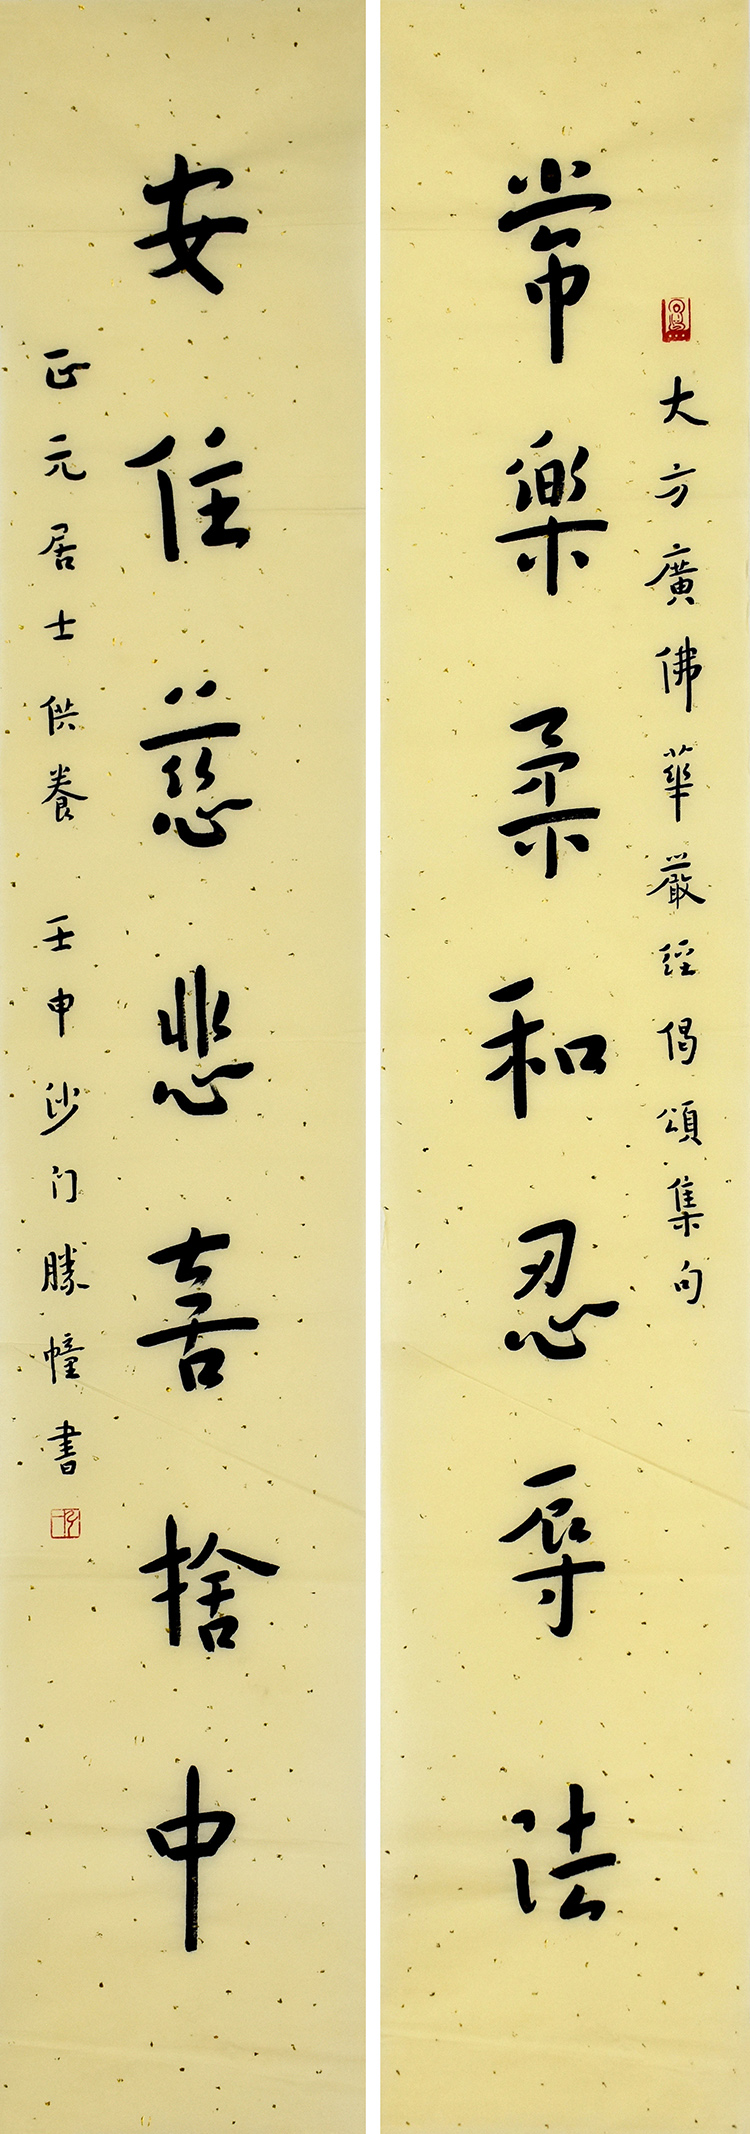 大方廣佛華嚴經偈頌集句
常樂柔和忍辱法
安住慈悲喜捨中
正元居士供養 壬申沙门勝幢書